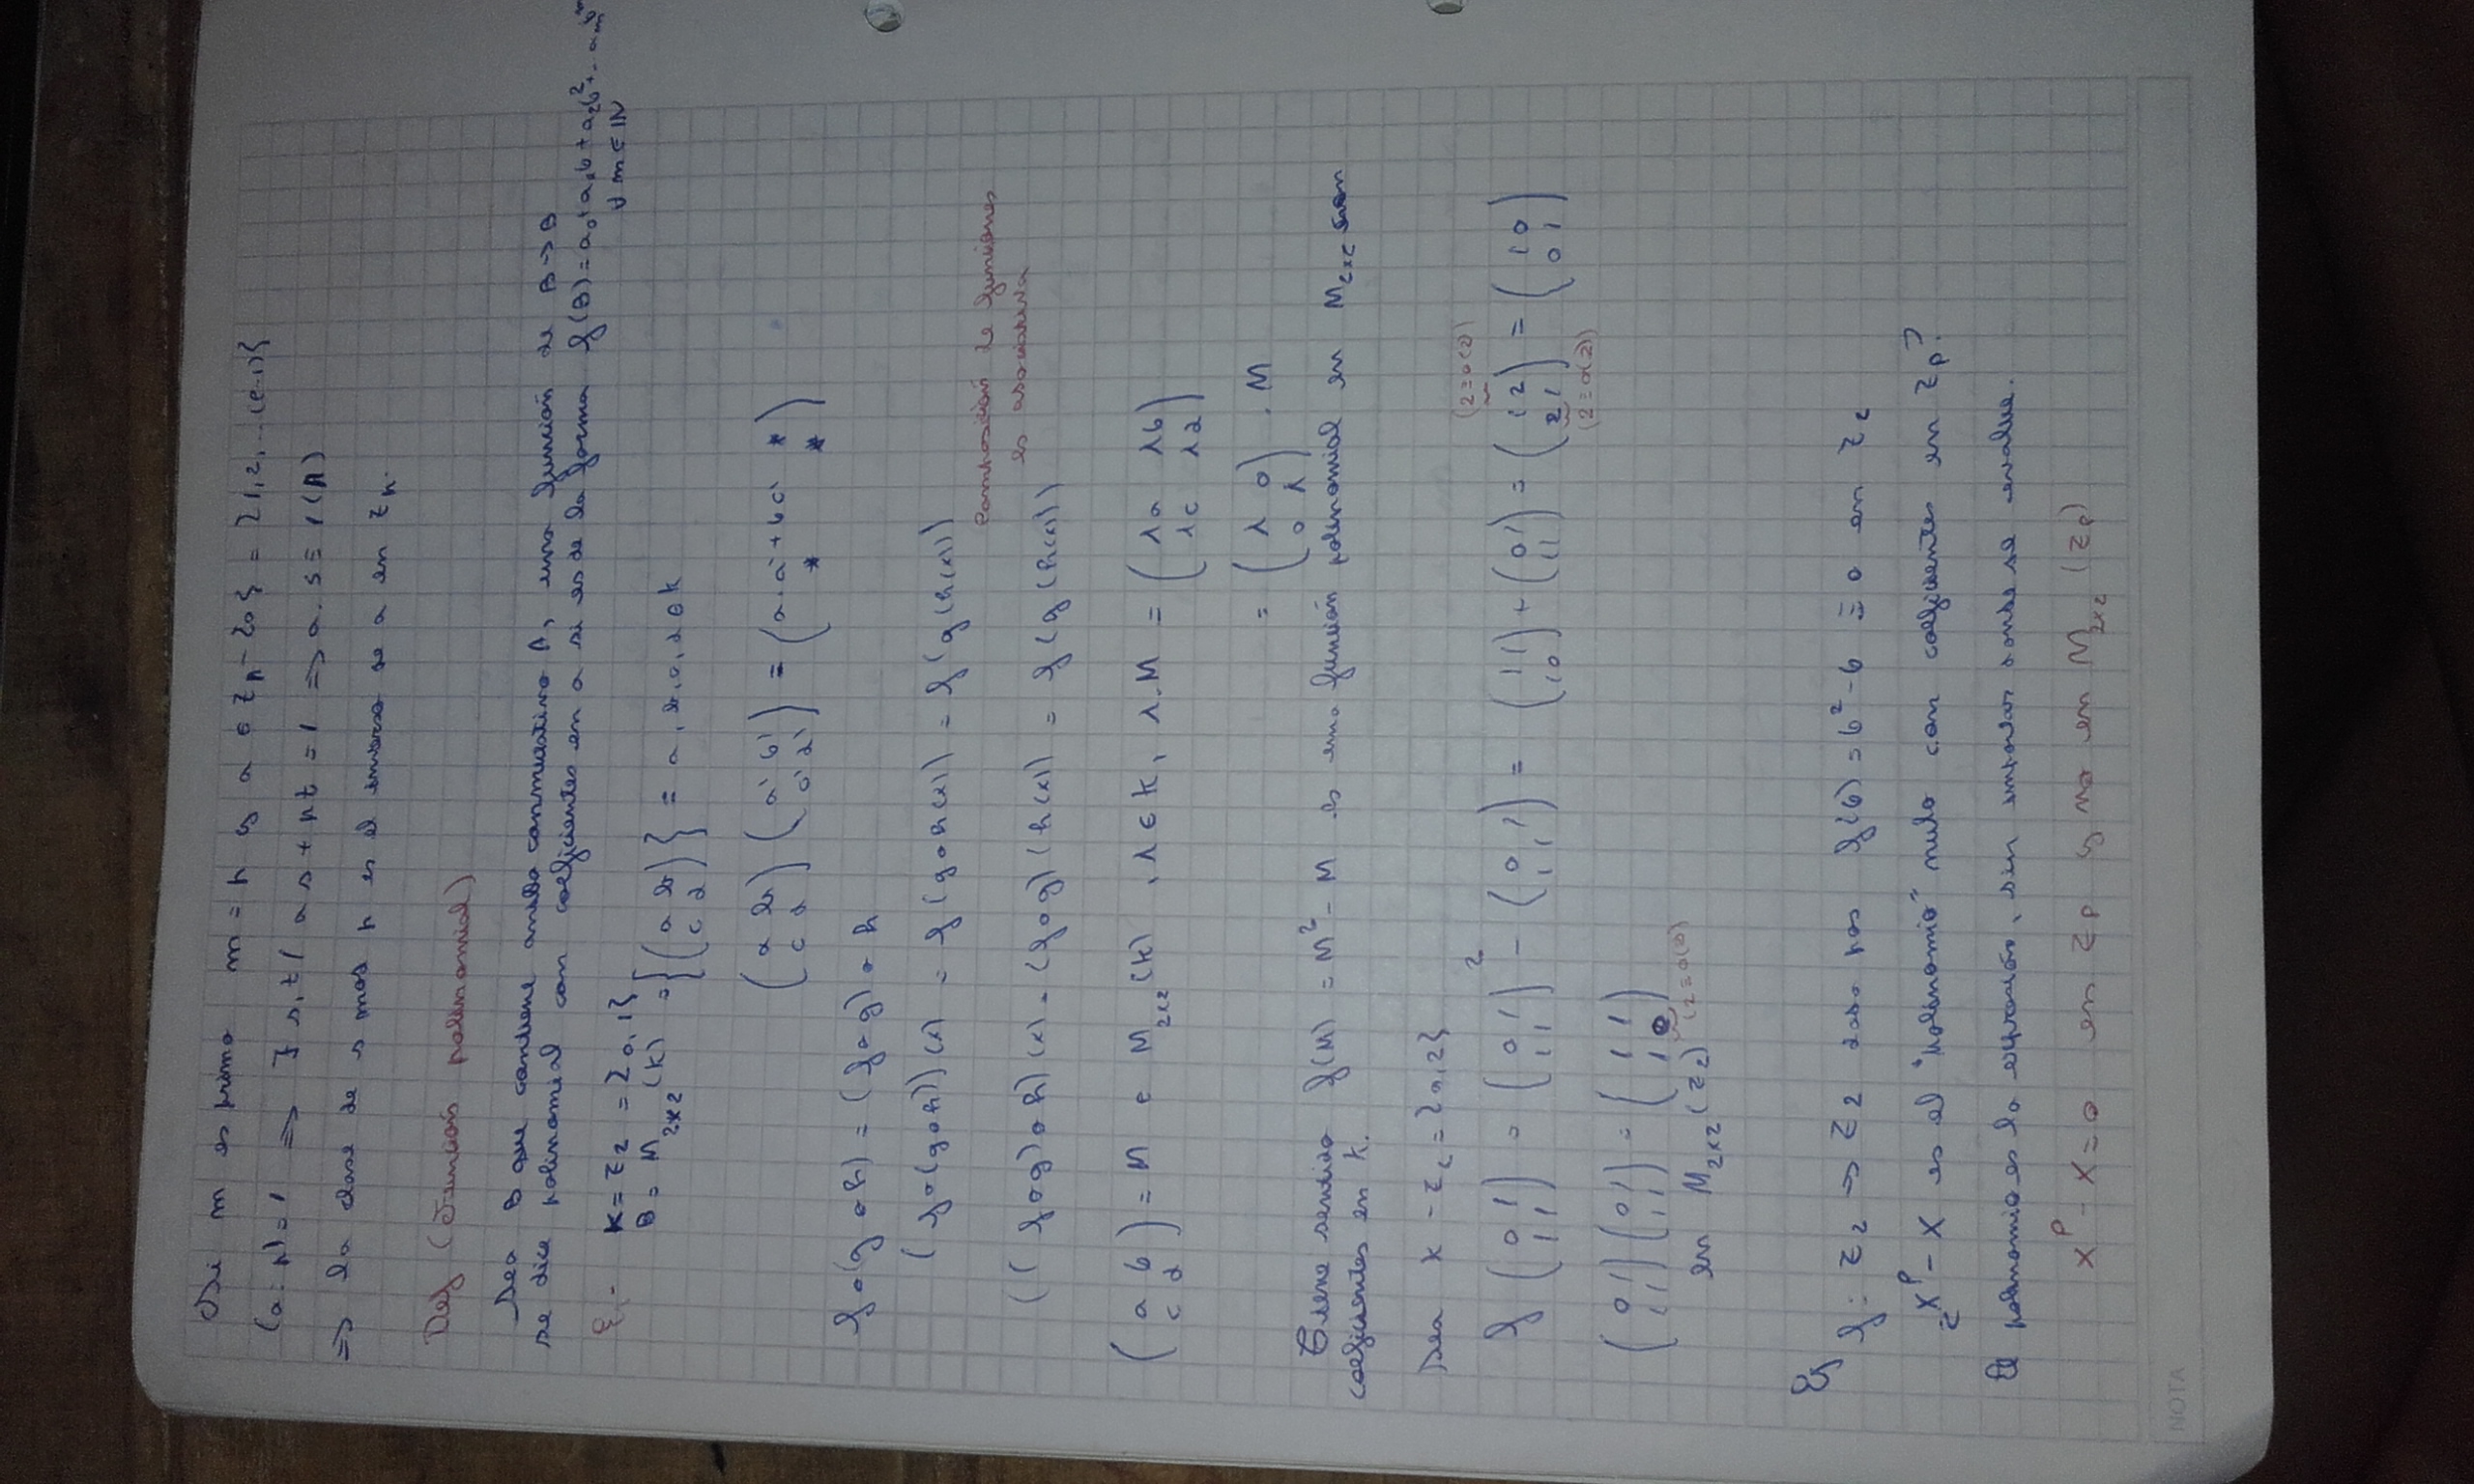 Si m es primo m = p y a ∈ Zp - {0} = {1,2,...(p-1)}
(a:p)=1 => ∃ s,t / as + pt = 1 => a.s ≡ 1(p)
=> la clase de s mod p es el inverso de a en Zp.
Def (Función polinomial)
Sea B que contiene anillo conmutativo A, una función de B->B
se dice polinomial con coeficientes en a si es de la forma f(B) = a₀+a₁b+a₂b²+..aₘbᵐ
∀ m ∈ IN
Ej- K = Z₂ = {0,1}
B = M₂ₓ₂(K) = {(a b; c d)} = a,b,c,d ∈ K
(a b; c d) (a' b'; c' d') = (a.a'+bc' *; * *)
f∘(g∘h) = (f∘g)∘h
(f∘(g∘h))(x) = f(g∘h(x)) = f(g(h(x)))
Composición de funciones
es asociativa
((f∘g)∘h)(x) = (f∘g)(h(x)) = f(g(h(x)))
(a b; c d) = M ∈ M₂ₓ₂(K), λ ∈ K, λ.M = (λa λb; λc λd)
= (λ 0; 0 λ) . M
Tiene sentido f(M) = M² - M es una función polinomial en M₂ₓ₂ con
coeficientes en K.
Sea K = Z₂ = {0,2}
(2≡0(2))
f (0 1; 1 1) = (0 1; 1 1)² - (0 1; 1 1) = (1 1; 1 0) + (0 1; 1 1) = (1 2; 2 1) = (1 0; 0 1)
(2≡0(2))
(0 1; 1 1)(0 1; 1 1) = (1 1; 1 0)
en M₂ₓ₂(Z₂) (2≡0(2))
Ej
f: Z₂ -> Z₂ dada por f(b) = b²-b ≡ 0 en Z₂
¿Xᵖ - X es el "polinomio" nulo con coeficientes en Zp?
El polinomio es la expresión, sin importar donde se evalue.
Xᵖ - X = 0 en Zp y no en M₂ₓ₂(Zp)
NOTA